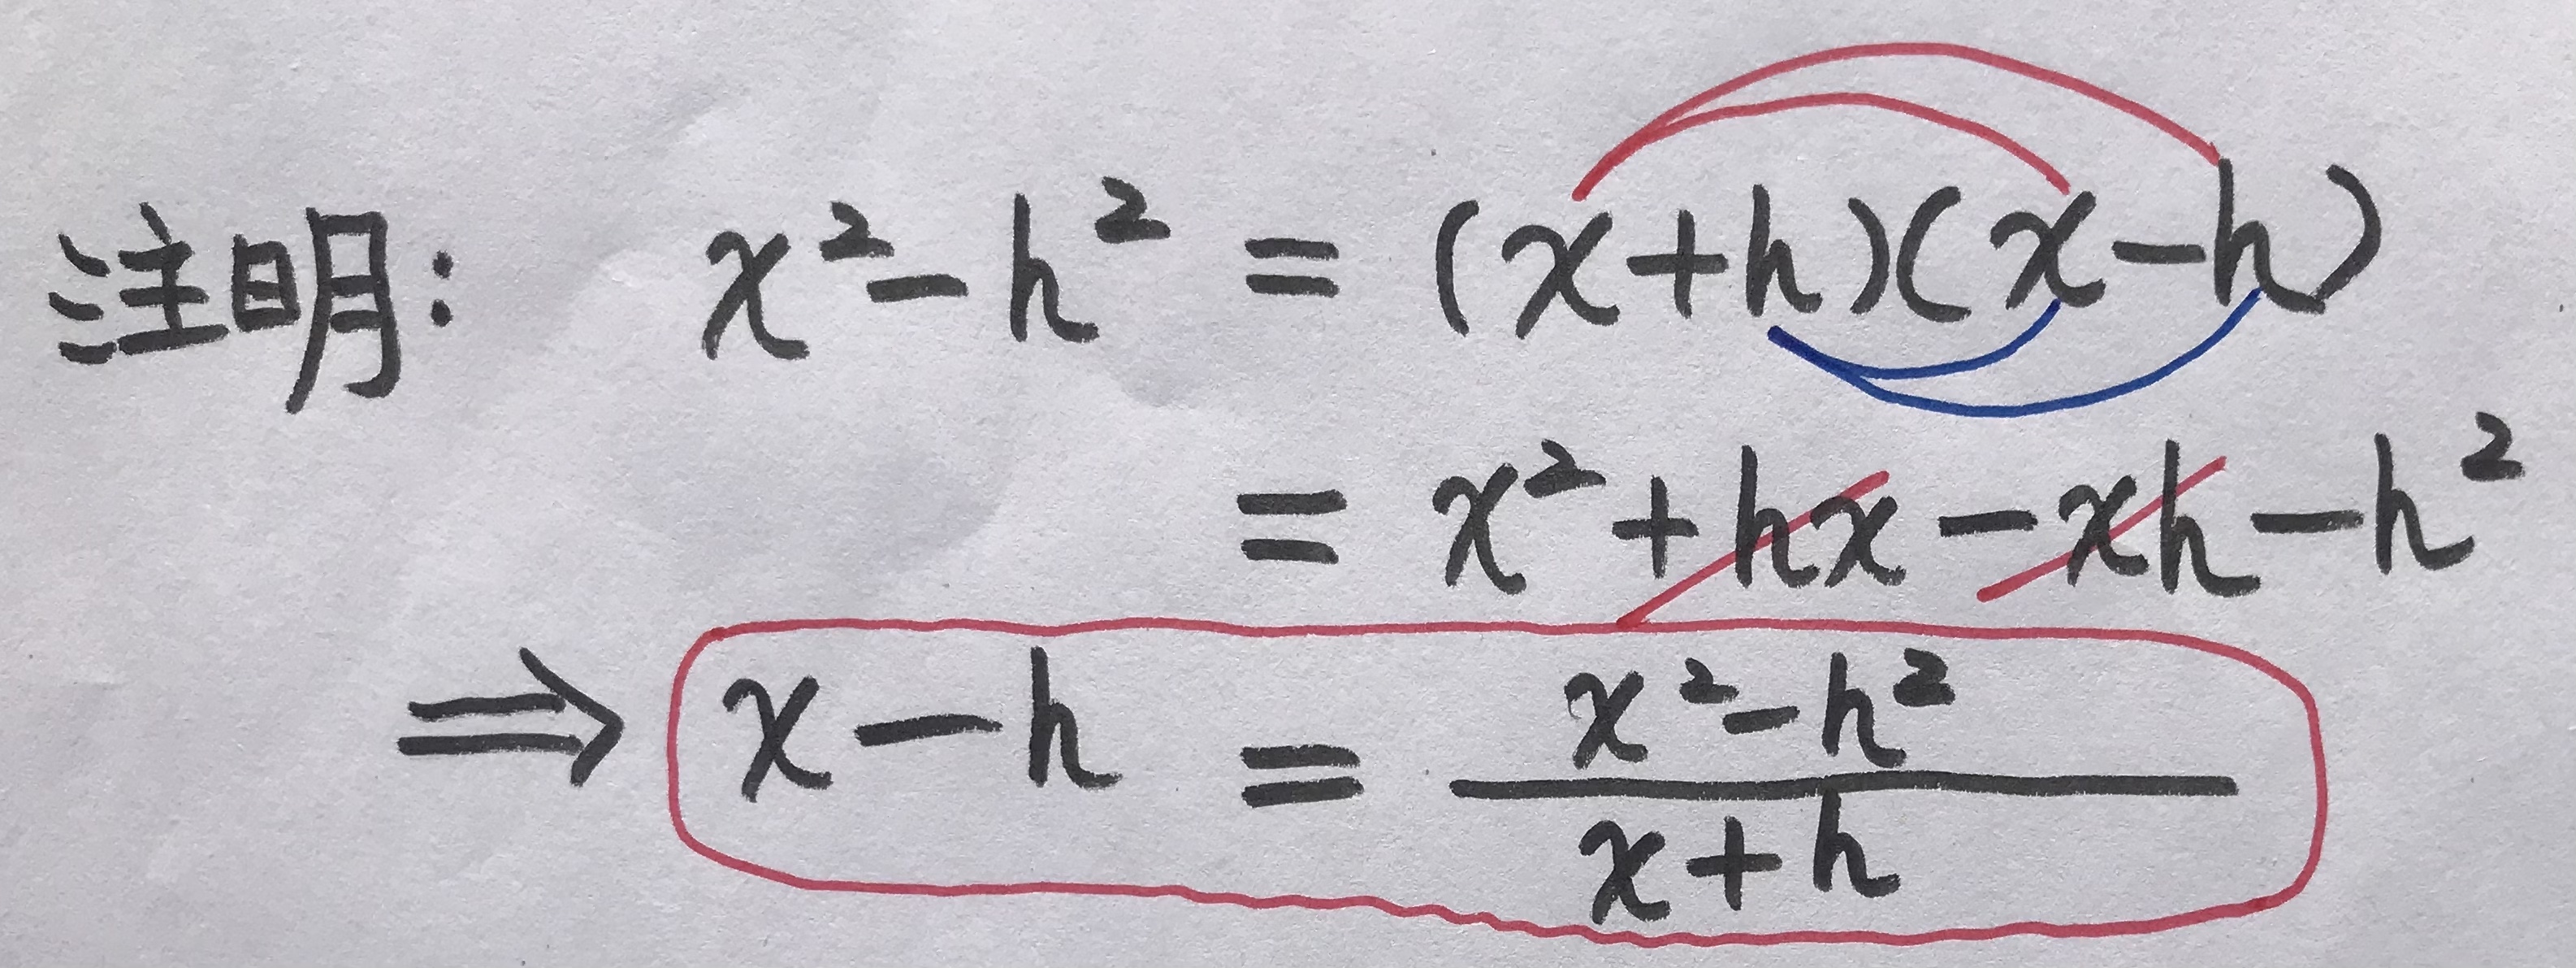 注明: x² - h² = (x+h)(x-h)
= x² + hx - xh - h²
⇒ x - h = \frac{x² - h²}{x+h}